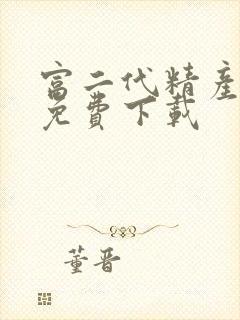 富二代精產
免費下載
董晋